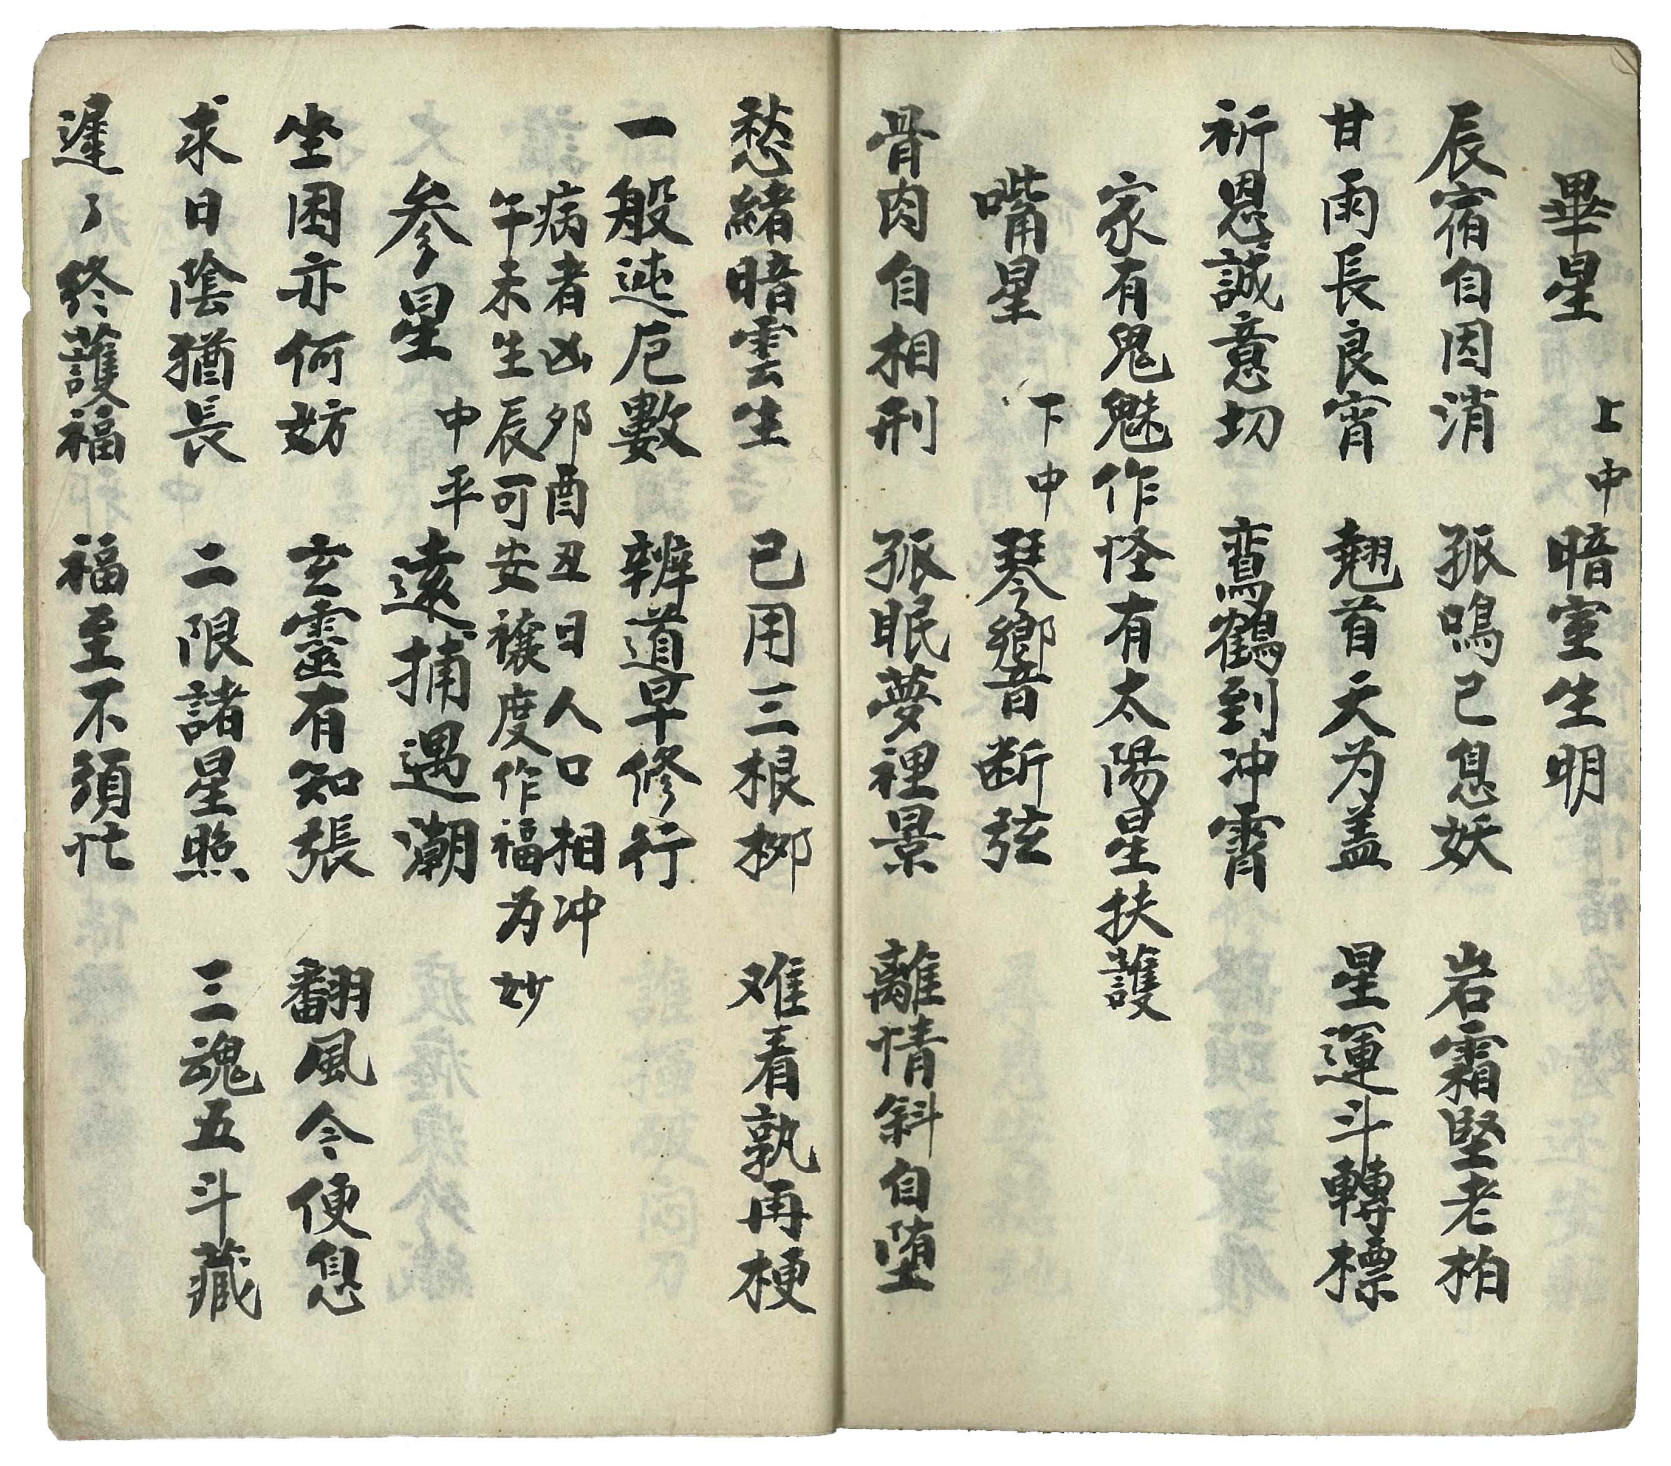 畢星 上中 暗室生明
辰宿自因消 孤鳴已息妖 岩霜堅老柏
甘雨長良宵 翹首天为盖 星運斗轉標
祈恩誠意切 鸞鶴到冲霄
家有鬼魅作怪有太陽星扶護
嘴星 下中 琴響断弦
骨肉自相刑 孤眠夢裡景 離情斜自堕
愁緒暗雲生 已用三根柳 难看孰再梗
一般迍厄數 辦道早修行
病者凶卯酉丑日人口相冲
午未生辰可安禳度作福为妙
参星 中平 遠捕遇潮
坐困亦何妨 玄靈有知張 翻風令便息
求日陰猶長 二限諸星照 三魂五斗藏
遲了終護福 福至不須忙